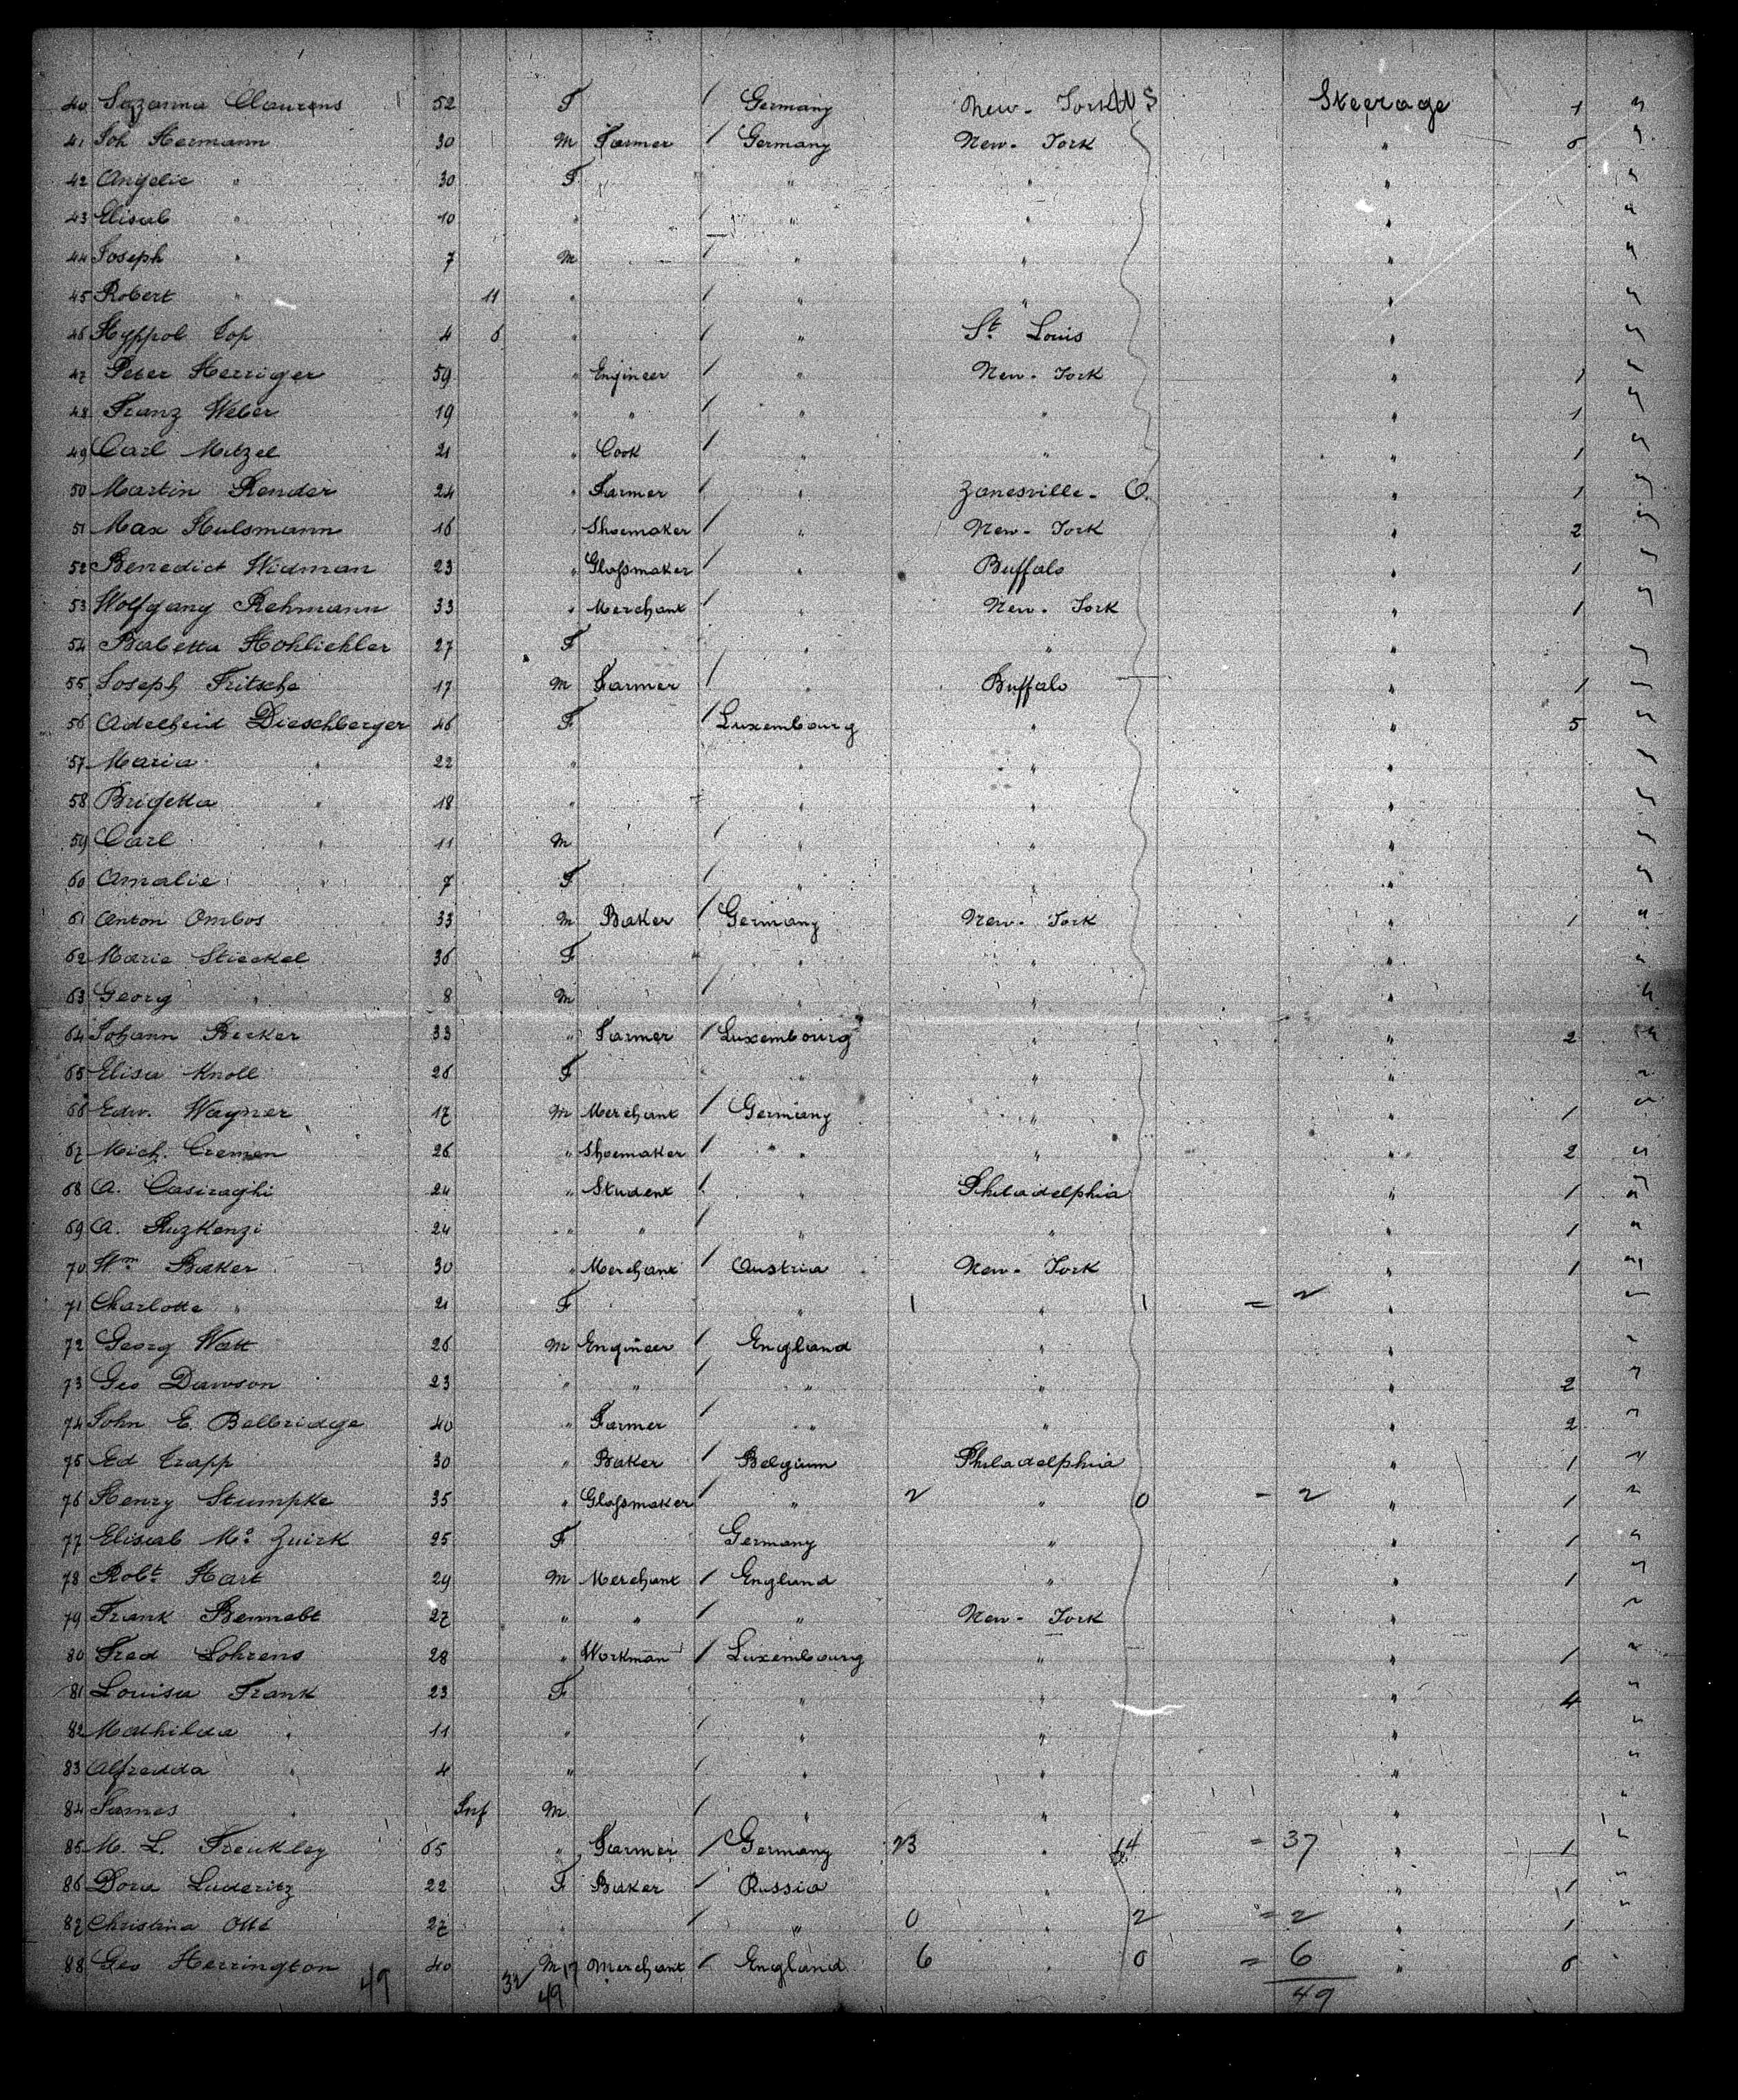 40 Suzanna Claurens 52 F / Germany New-York U S Steerage 1 "
41 Joh Hermann 30 M Farmer / Germany New-York " 6 "
42 Angelie " 30 F " " " "
43 Elisab " 10 " / " " " "
44 Joseph " 7 M / " " " "
45 Robert " 11 " / " " " "
46 Hyppol Top 4 6 " / " St Louis " "
47 Peter Herriger 59 " Engineer / " New-York " 1 "
48 Franz Weber 19 " " / " " " 1 "
49 Carl Mitzel 21 " Cook / " " " 1 "
50 Martin Render 24 " Farmer / " Zanesville-O. " 1 "
51 Max Hulsmann 16 " Shoemaker / " New-York " 2 "
52 Benedict Widman 23 " Glassmaker / " Buffalo " 1 "
53 Wolfgang Rehmann 33 " Merchant / " New-York " 1 "
54 Babetta Hohlichler 27 F " " " "
55 Joseph Fritsche 17 M Farmer / " Buffalo " 1 "
56 Adelheid Dieschberger 46 F / Luxembourg " " 5 "
57 Maria " 22 " " " " "
58 Brigetta " 18 " " " " "
59 Carl " 11 M / " " " "
60 Amalie " 7 F / " " " "
61 Anton Ombos 33 M Baker / Germany New-York " 1 "
62 Marie Stieckel 36 F " " " "
63 Georg " 8 M / " " " "
64 Johann Becker 33 " Farmer / Luxembourg " " 2 "
65 Elisa Knoll 26 F " " " "
66 Edw. Wagner 17 M Merchant / Germany " " 1 "
67 Mich. Cremen 26 " Shoemaker / " " " 2 "
68 A. Casiraghi 24 " Student / " Philadelphia " 1 "
69 A. Ruzkenzi 24 " " / " " " 1 "
70 Wm Baker 30 " Merchant / Austria New-York " 1 "
71 Charlotte " 21 F " 1 " 1 = 2 " "
72 Georg Watt 26 M Engineer / England " " "
73 Geo Dawson 23 " " / " " " 2 "
74 John E. Balbridge 40 " Farmer / " " " 2 "
75 Ed Trapp 30 " Baker / Belgium Philadelphia " 1 "
76 Henry Stumpke 35 " Glassmaker / " 2 " 0 - 2 " 1 "
77 Elisab Mc Quirk 25 F Germany " " 1 "
78 Robt Hart 29 M Merchant / England " " 1 "
79 Frank Bennabt 27 " " / " New-York " "
80 Fred Lohrens 28 " Workman / Luxembourg " " 1 "
81 Louisa Frank 23 F " " " 4 "
82 Mathilda " 11 " / " " " "
83 Alfredda " 4 " / " " " "
84 James " Inf M / " " " "
85 M. L. Frenkley 65 " Farmer / Germany 23 " 14 = 37 " 1 "
86 Dora Luderitz 22 F Baker / Russia " " 1 "
87 Christina Otté 27 " / " 0 " 2 = 2 " 1 "
88 Geo Herrington 40 M 17 Merchant / England 6 " 0 = 6 " 6
49 32 49 49